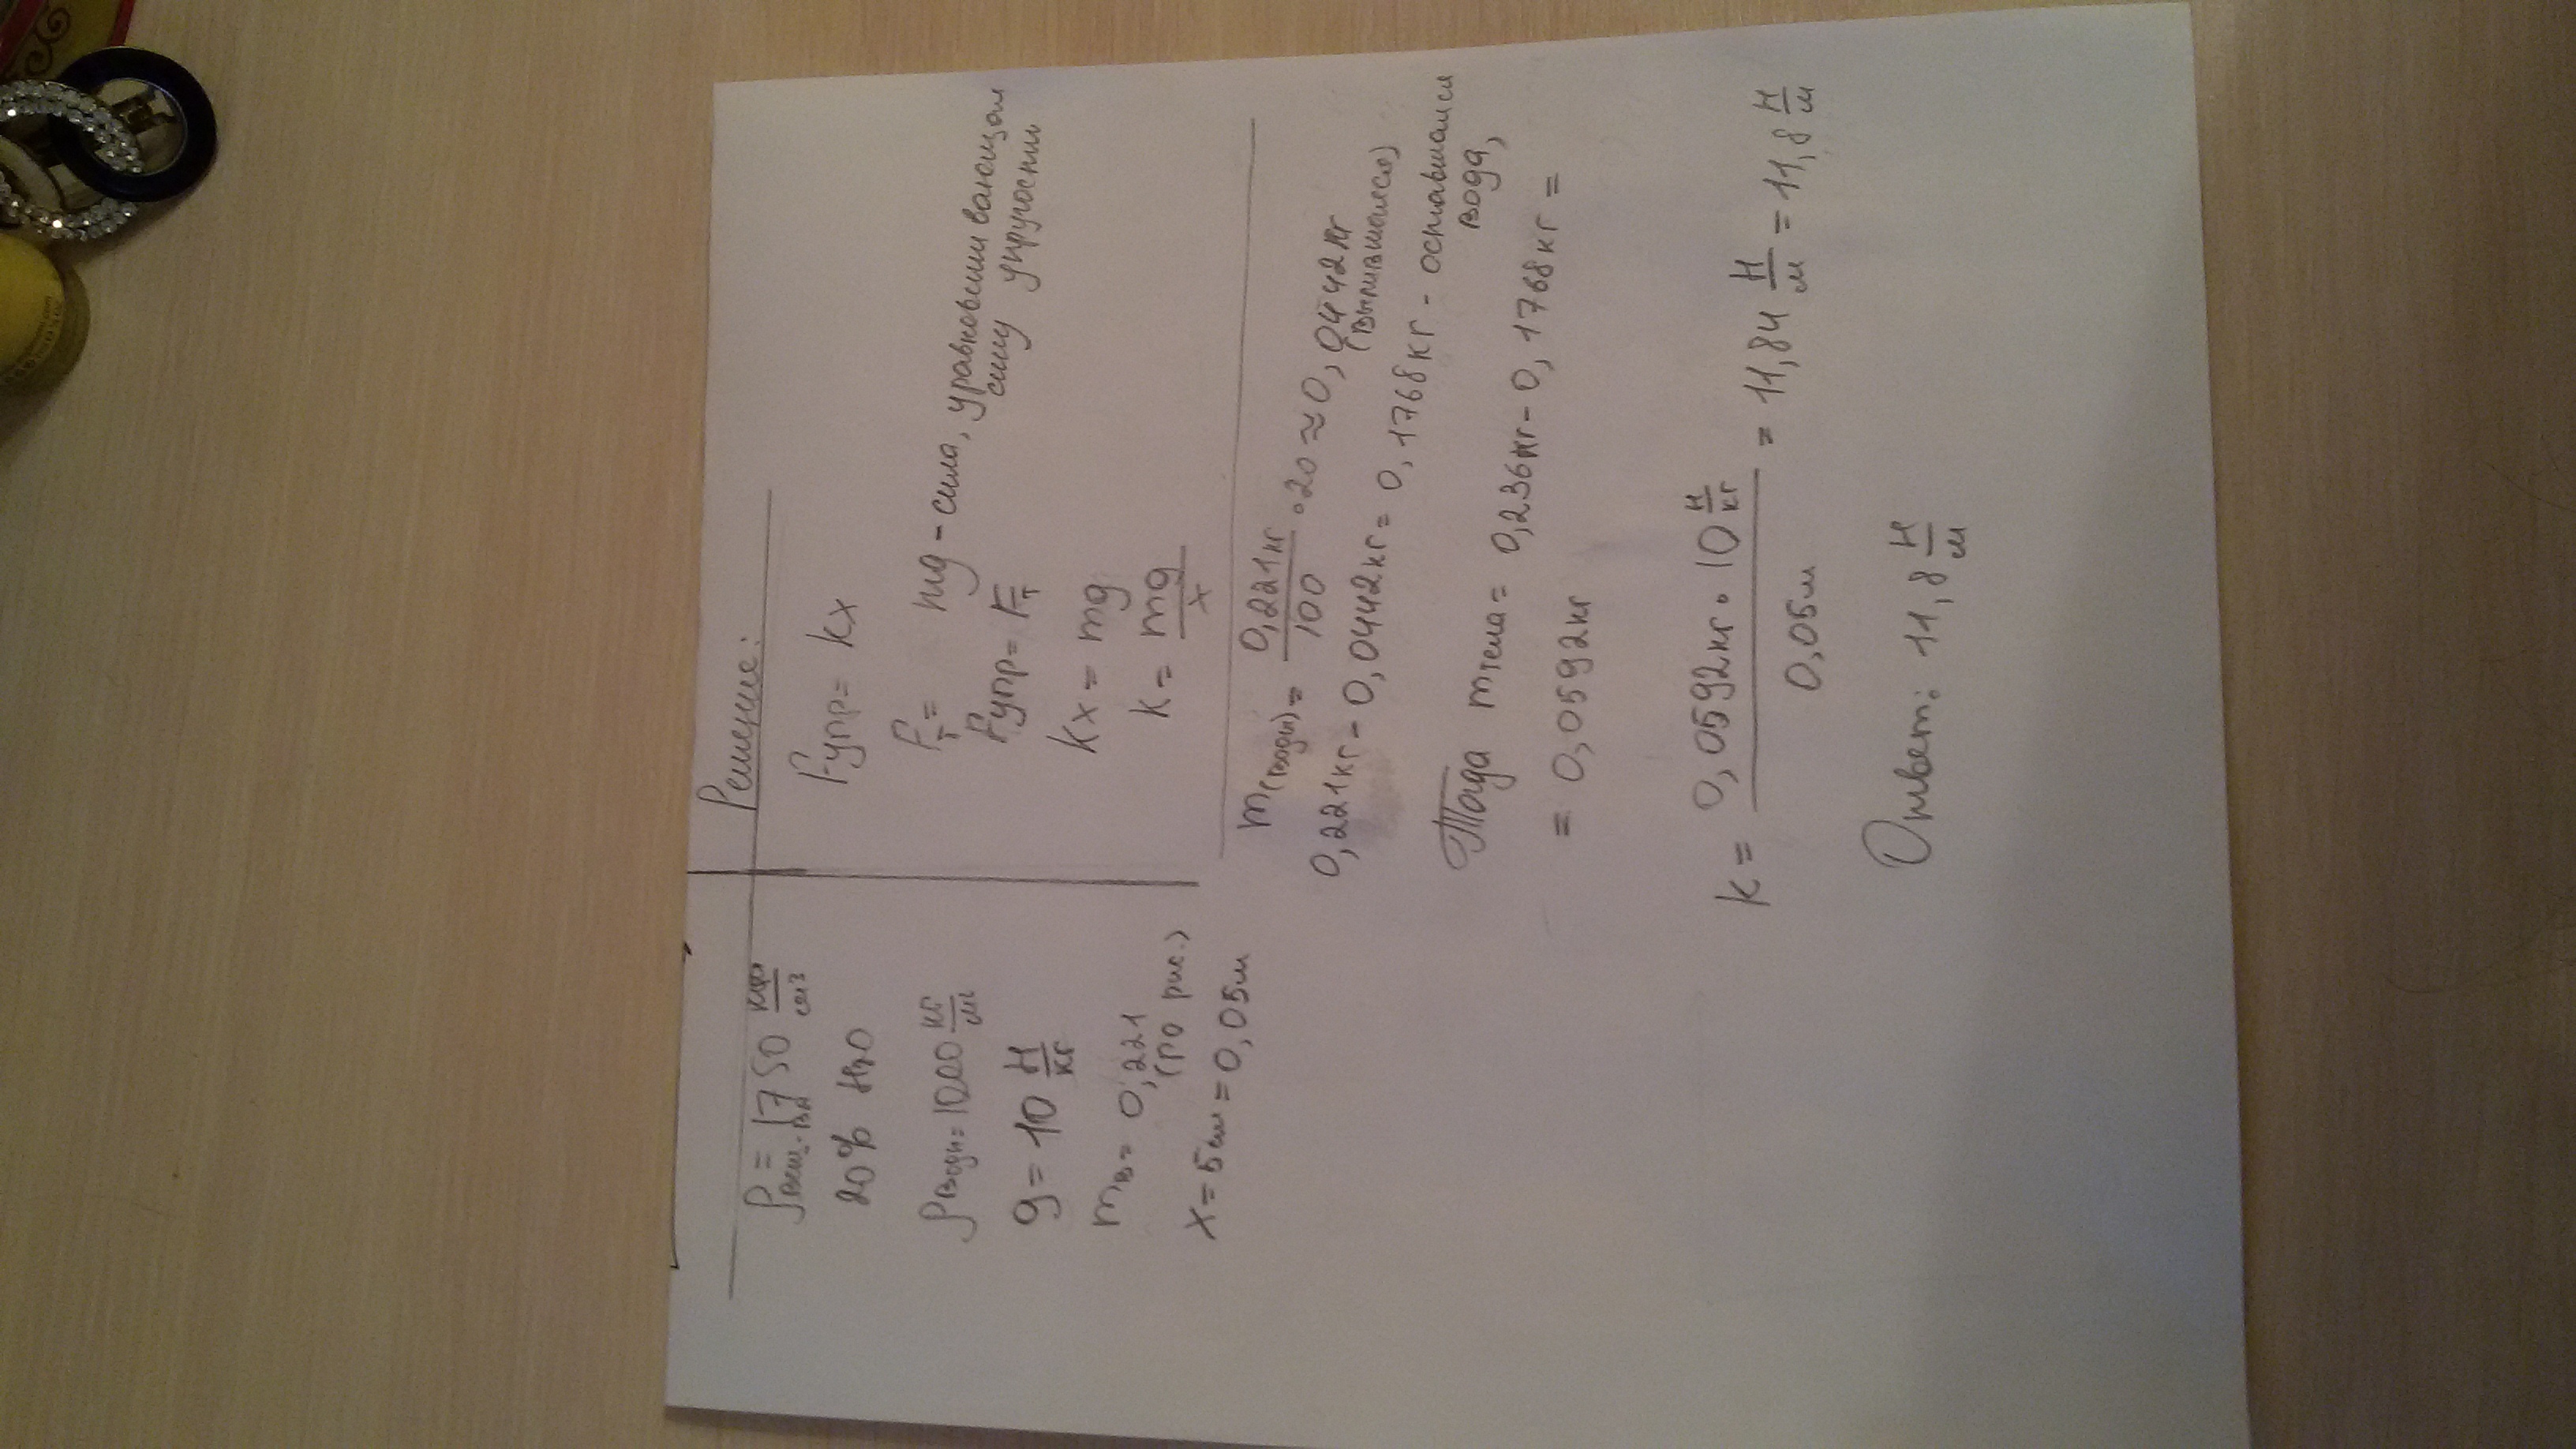 ρвещ-ва = 1750 кг/см³
20% H₂O
ρводы = 1000 кг/м
g = 10 Н/кг
mв = 0,221
(по рис.)
x = 5см = 0,05м
Решение:
Fупр = kx
Fт = mg - сила, уравновешивающая
силу упругости
Fупр = Fт
kx = mg
k = mg/x
m(воды) = 0,221кг/100 · 20 ≈ 0,0442кг
(вылившейся)
0,221кг - 0,0442кг = 0,1768кг - оставшаяся
вода,
Тогда mтела = 0,236кг - 0,1768кг =
= 0,0592кг
k = 0,0592кг · 10 Н/кг / 0,05м = 11,84 Н/м = 11,8 Н/м
Ответ: 11,8 Н/м